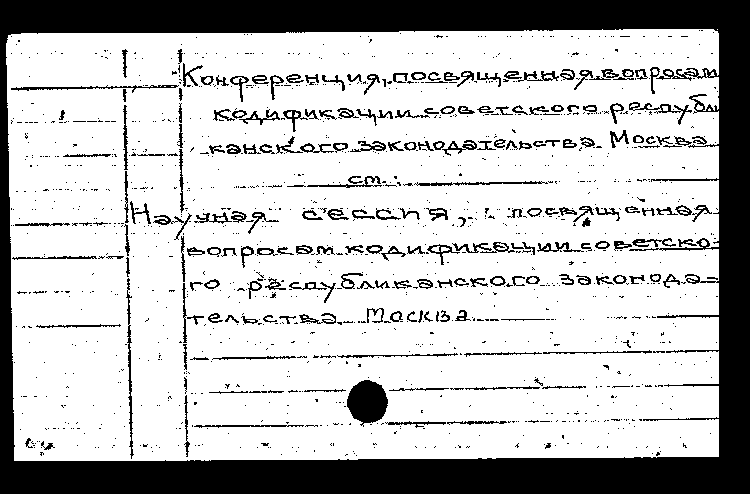 Конференция, посвященная вопросам
кодификации советского республи
канского законодательства. Москва
см.:
Научная сессия, посвященная
вопросам кодификации советско-
го республиканского законода=
тельства. Москва